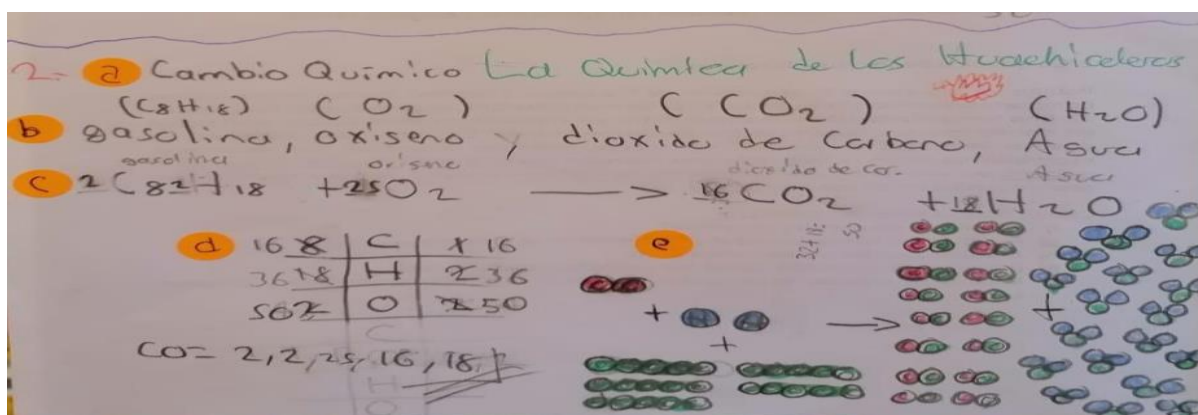 2- a Cambio Químico La Química de los Huachicoleros
(C8H18) (O2) (CO2) (H2O)
b gasolina, oxigeno y dioxido de Carbono, Agua
gasolina oxigeno dioxido de car. Agua
c 2C82H18 +25O2 → 16CO2 +18H2O
d 16 8 | C | 1 16 e 32+18= 50
36 18 | H | 2 36
50 2 | O | 2 50
C
CO= 2, 2, 25, 16, 18,
H
O
+ + → +